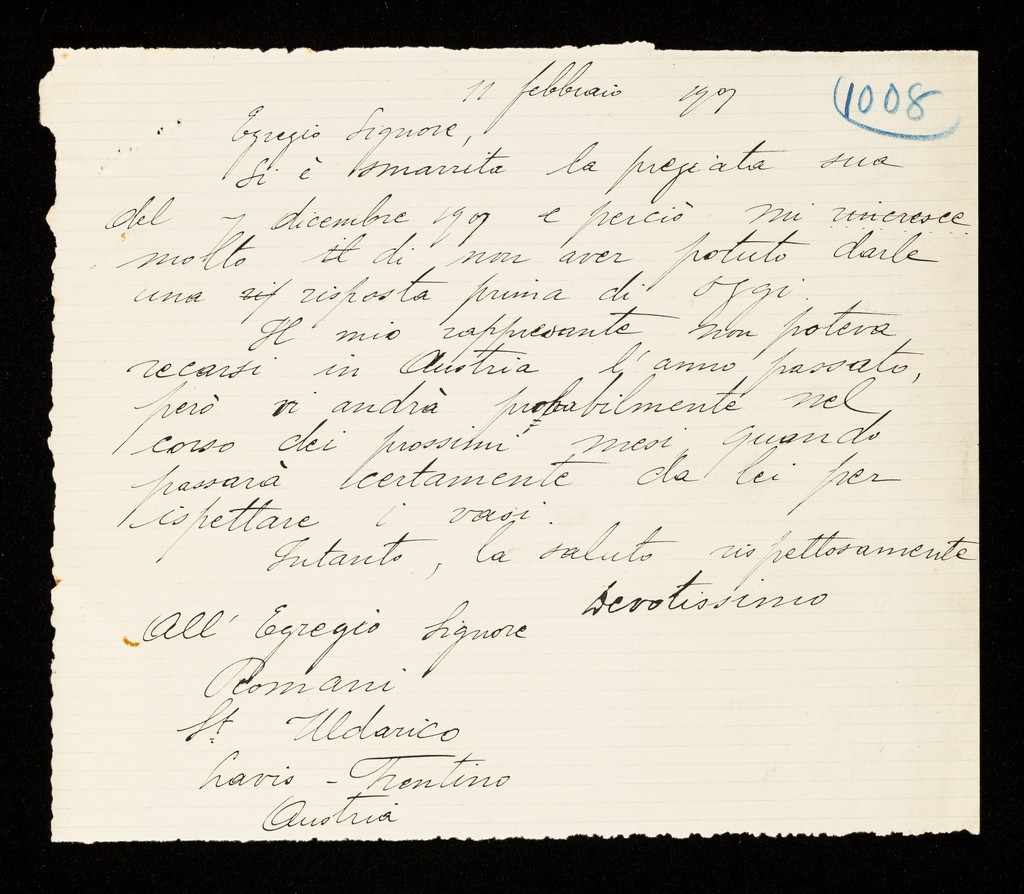 11 febbraio 1909
1008
Egregio Signore,
Si è smarrita la pregiata sua
del 7 dicembre 1907 e perciò mi rincresce
molto il di non aver potuto darle
una rif risposta prima di oggi.
Il mio rappresante non poteva
recarsi in Austria l'anno passato,
però vi andrà probabilmente nel
corso dei prossimi mesi quando
passarà certamente da lei per
ispettare i vasi.
Intanto, la saluto rispettosamente
Devotissimo
All' Egregio Signore
Romani
St. Uldarico
Lavis - Trentino
Austria